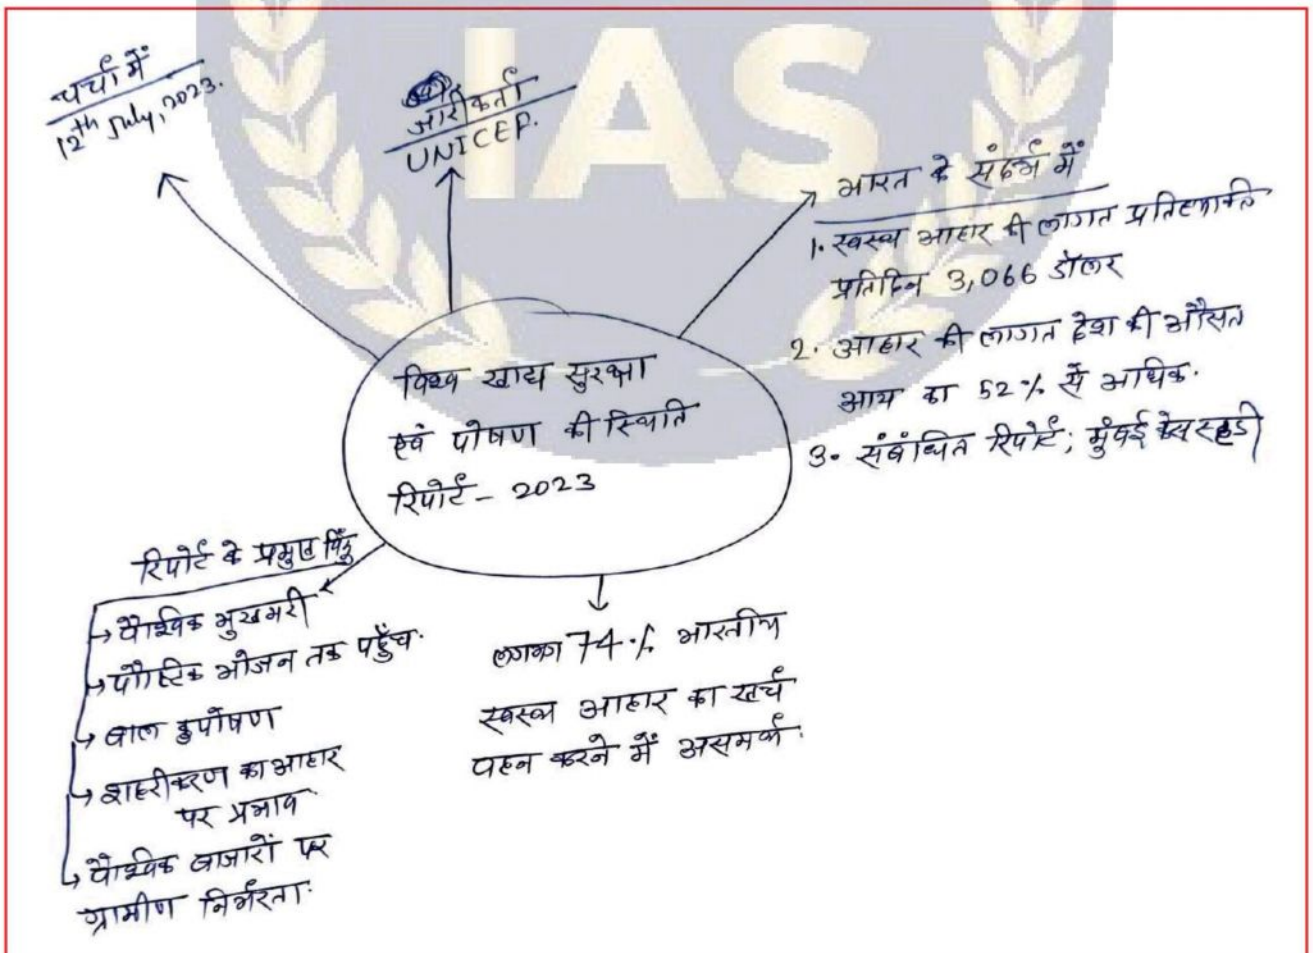 IAS
चर्चा में
12th July, 2023.
जारीकर्ता
UNICEF.
भारत के संदर्भ में
1. स्वस्थ आहार की लागत प्रतिव्यक्ति
प्रतिदिन 3,066 डॉलर
2. आहार की लागत देश की औसत
आय का 52% से अधिक.
3. संबंधित रिपोर्ट; मुंबई केस स्टडी
विश्व खाद्य सुरक्षा
एवं पोषण की स्थिति
रिपोर्ट - 2023
रिपोर्ट के प्रमुख बिंदु
→ वैश्विक भुखमरी
→ पौष्टिक भोजन तक पहुँच.
→ बाल कुपोषण
→ शहरीकरण का आहार
पर प्रभाव
→ वैश्विक बाजारों पर
ग्रामीण निर्भरता.
74% भारतीय
स्वस्थ आहार का खर्च
वहन करने में असमर्थ.